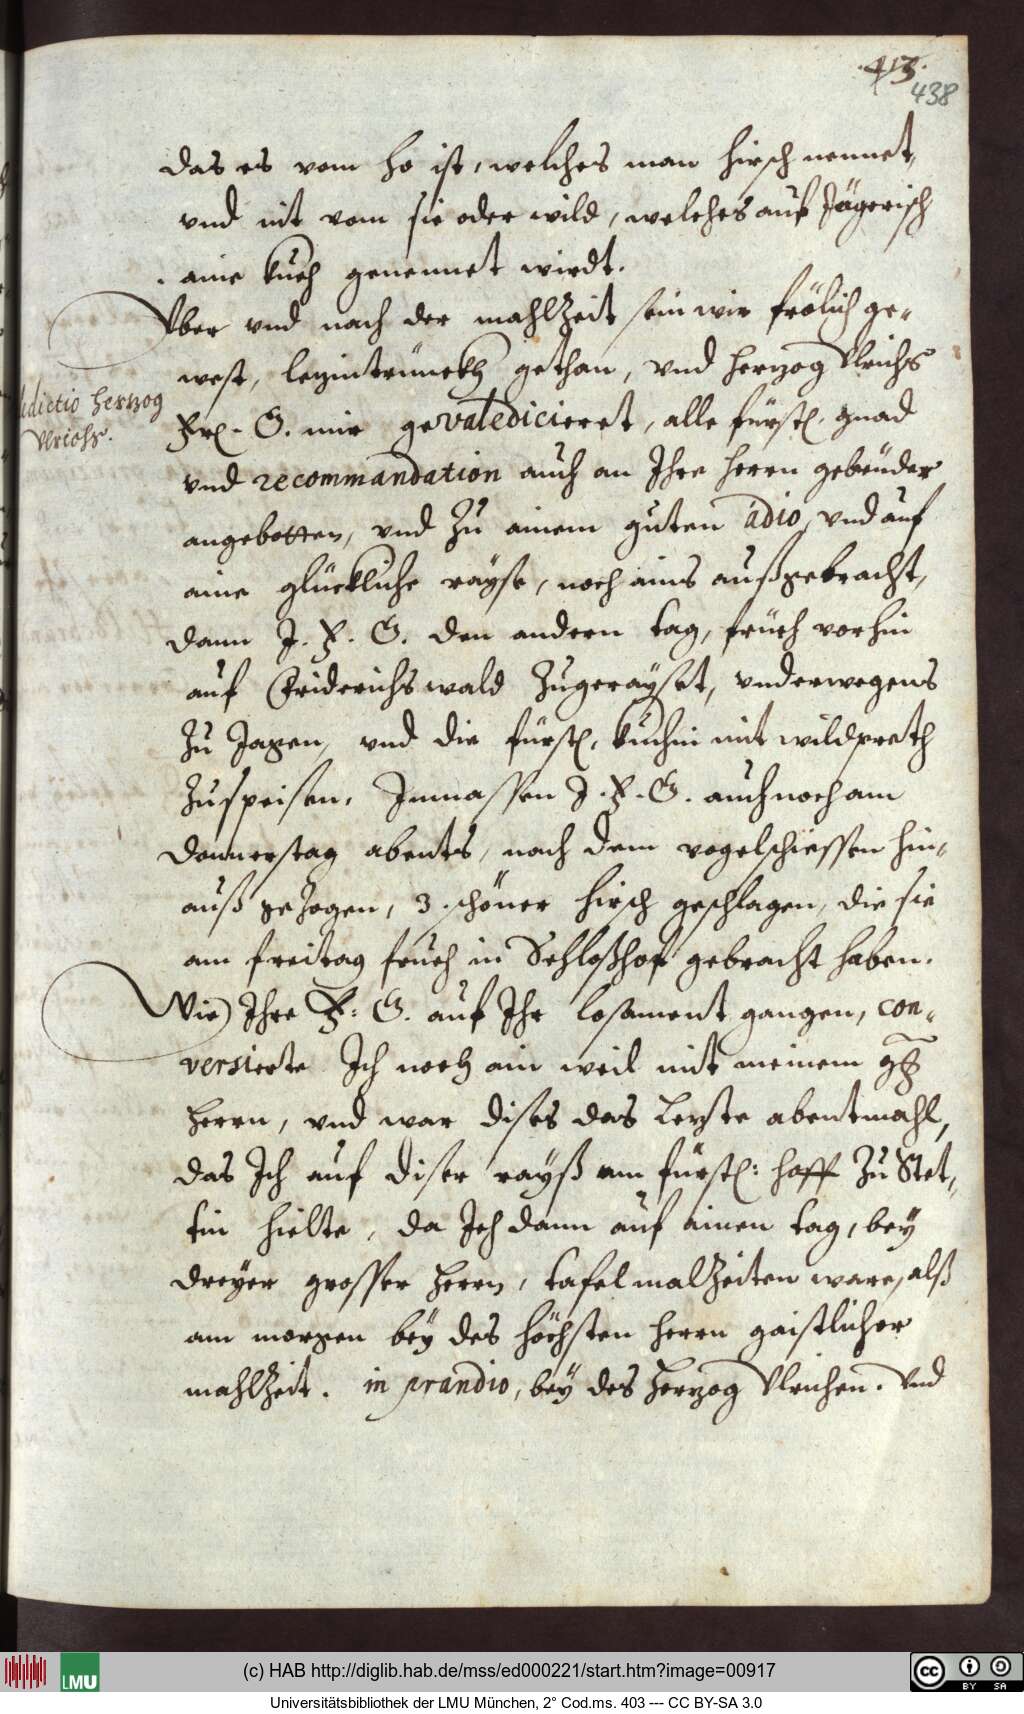 413.
438
das es vom ho ist, welches man hirsch nennet,
vnd nit vom sie oder wild, welches auf Jägerisch
aine kueh genennet wirdt.
Vber vnd nach der mahlzeit sein wir frölich ge-
west, vnd herzog Vlrichs
Valedictio Herzog
Vlrichs.
Frl. G. mir gevaledicieret, alle fürstl. gnad
vnd recommandation auch an Ihre herrn gebrüder
angebotten, vnd zu ainem guten adio, vnd auf
aine glückliche rayse, noch ains außgebracht,
dann J. F. G. den andern tag, früeh vorhin
auf Friderichswald zugerayset, vnderwegens
zu Jagen, vnd die fürstl. kuchin mit wildpreth
zuspeisen. Inmassen J. F. G. auch noch am
donnerstag abents, nach dem vogelschiessen hin-
auß gezogen, 3. schöner hirsch geschlagen, die sie
am freitag frueh in Schloßhof gebracht haben.
Wie Ihre F. G. auf Ihr losament gangen, con-
versierte Ich noch ain weil mit meinem gn.
herrn, vnd war dises das letzte abentmahl,
das Ich auf diser rayß am fürstl: hoff zu Stet-
tin hielte, da Ich dann auf ainen tag, bey
dreyer grosser herrn, tafel malzeiten ware, alß
am morgen bey des höchsten herrn gaistlicher
mahlzeit. in prandio, bey des herzog Vlrichen. Vnd
(c) HAB http://diglib.hab.de/mss/ed000221/start.htm?image=00917
LMU
cc BY SA
Universitätsbibliothek der LMU München, 2° Cod.ms. 403 --- CC BY-SA 3.0